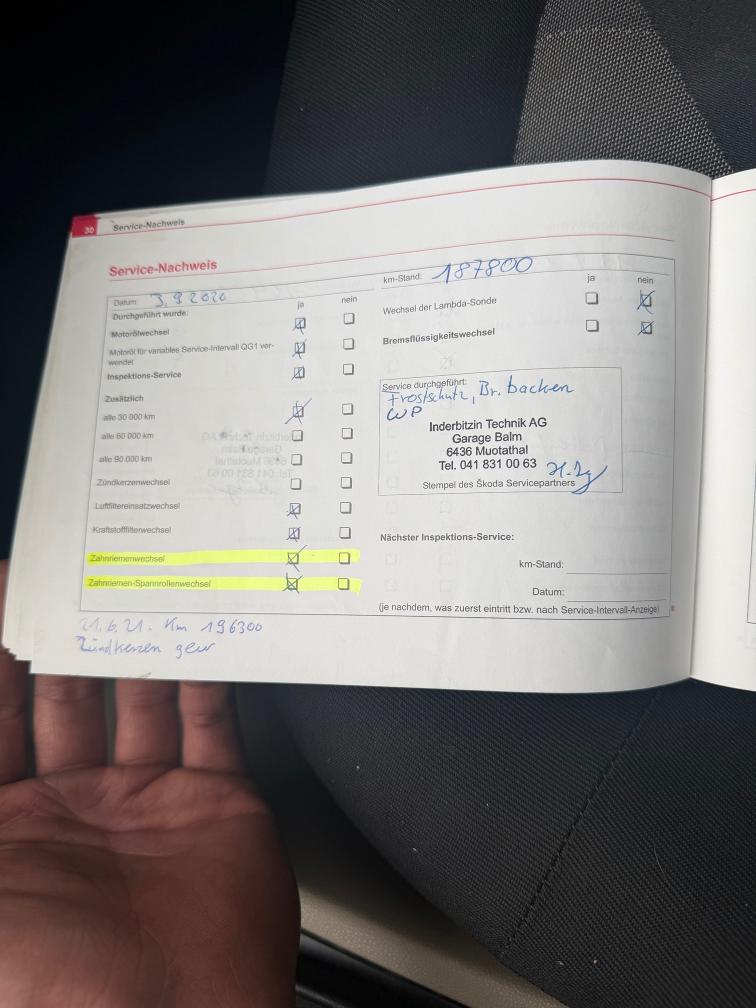 30 Service-Nachweis
Service-Nachweis
Datum: 3.9.2020
ja nein
Durchgeführt wurde:
Motorölwechsel
Motoröl für variables Service-Intervall QG1 ver-
wendet
Inspektions-Service
Zusätzlich
alle 30 000 km
alle 60 000 km
alle 90 000 km
Zündkerzenwechsel
Luftfiltereinsatzwechsel
Kraftstofffilterwechsel
Zahnriemenwechsel
Zahnriemen-Spannrollenwechsel
21.6.21. Km 196300
Zündkerzen gew
km-Stand: 187800
ja nein
Wechsel der Lambda-Sonde
Bremsflüssigkeitswechsel
Service durchgeführt:
Frostschutz, Br. backen
WP
Inderbitzin Technik AG
Garage Balm
6436 Muotathal
Tel. 041 831 00 63
Stempel des Škoda Servicepartners
Nächster Inspektions-Service:
km-Stand:
Datum:
(je nachdem, was zuerst eintritt bzw. nach Service-Intervall-Anzeige)